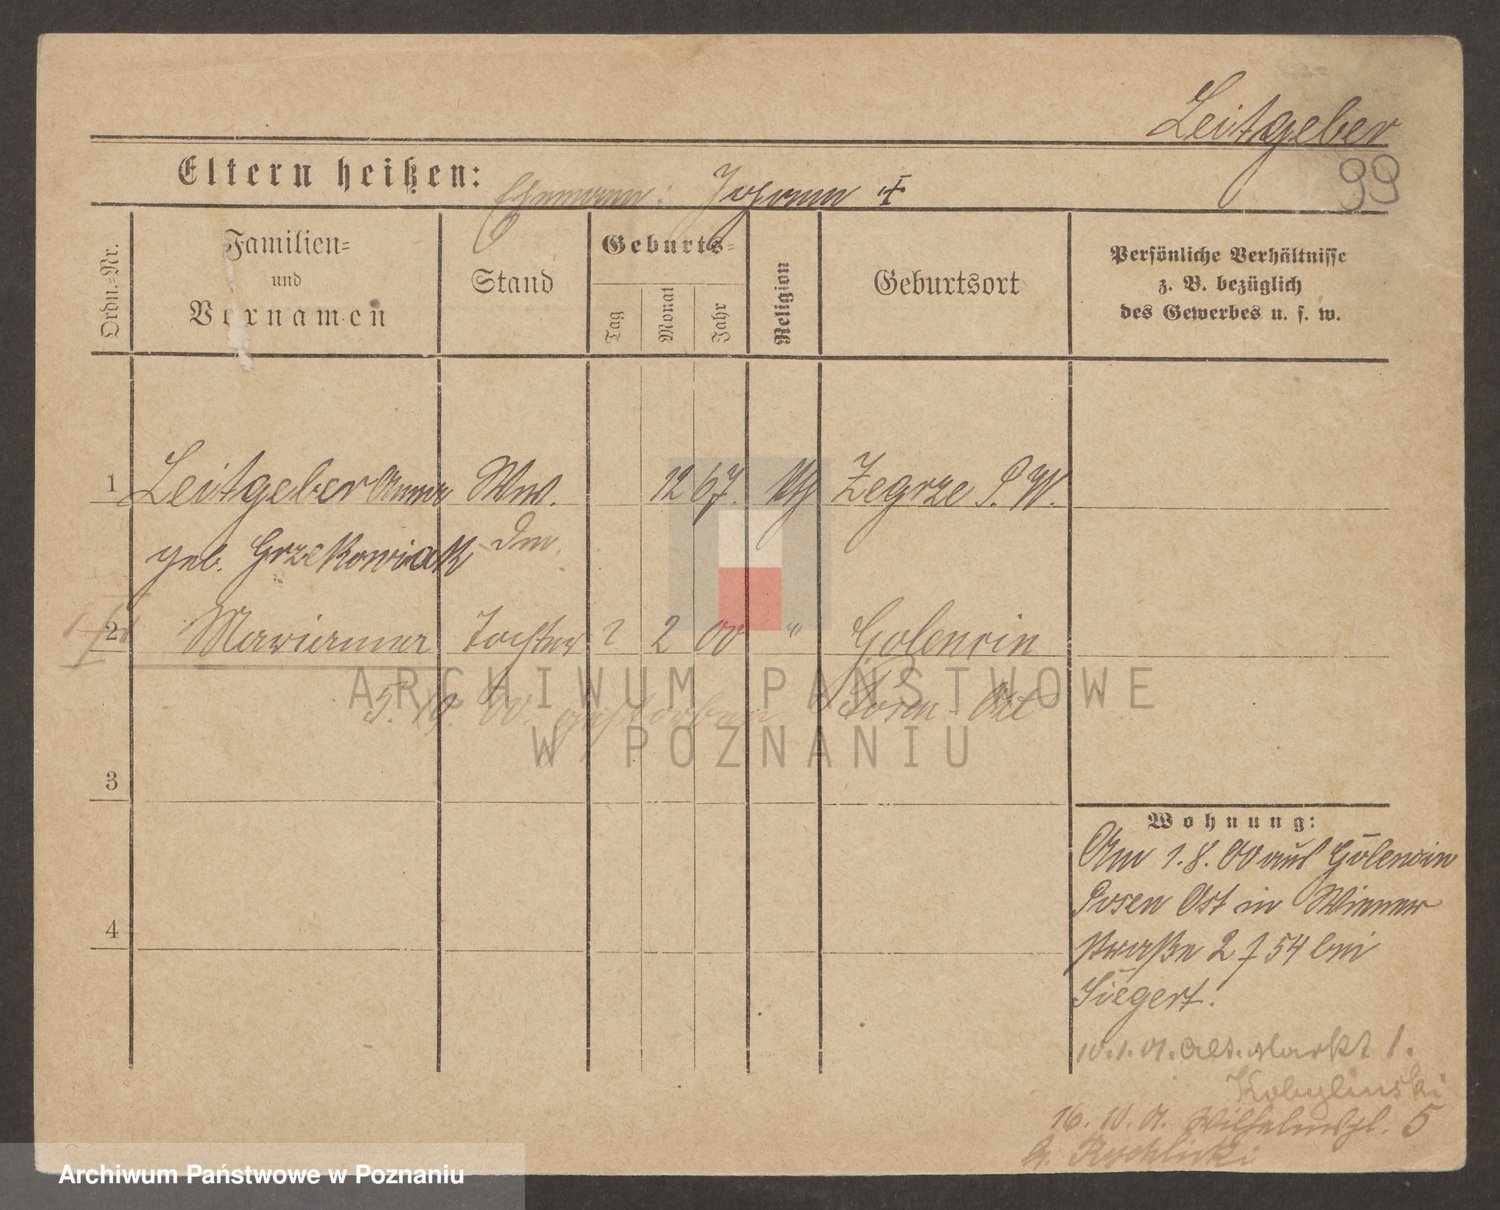 Leitgeber
99
Eltern heißen: Ehemann: Johann †
Ordn.-Nr.
Familien-
und
Vornamen
Stand
Geburts-
Tag
Monat
Jahr
Religion
Geburtsort
Persönliche Verhältnisse
z. B. bezüglich
des Gewerbes u. s. w.
1 Leitgeber Anna Ww. 12 67. kth Zegrze P. W.
geb. Grzekowiak
2 Marianna Tochter 2 2 00 " Golencin
5. 10. 00. gestorben Posen-Ost
ARCHIWUM PAŃSTWOWE
W POZNANIU
3
Wohnung:
Am 1.8.00 aus Golencin
Posen Ost in Wiener
straße 2 f 54 bei
Siegert.
4
10.1.01. Alt. Markt 1.
Kobylinski
16. 10. 01. Wilhelmspl. 5
Archiwum Państwowe w Poznaniu